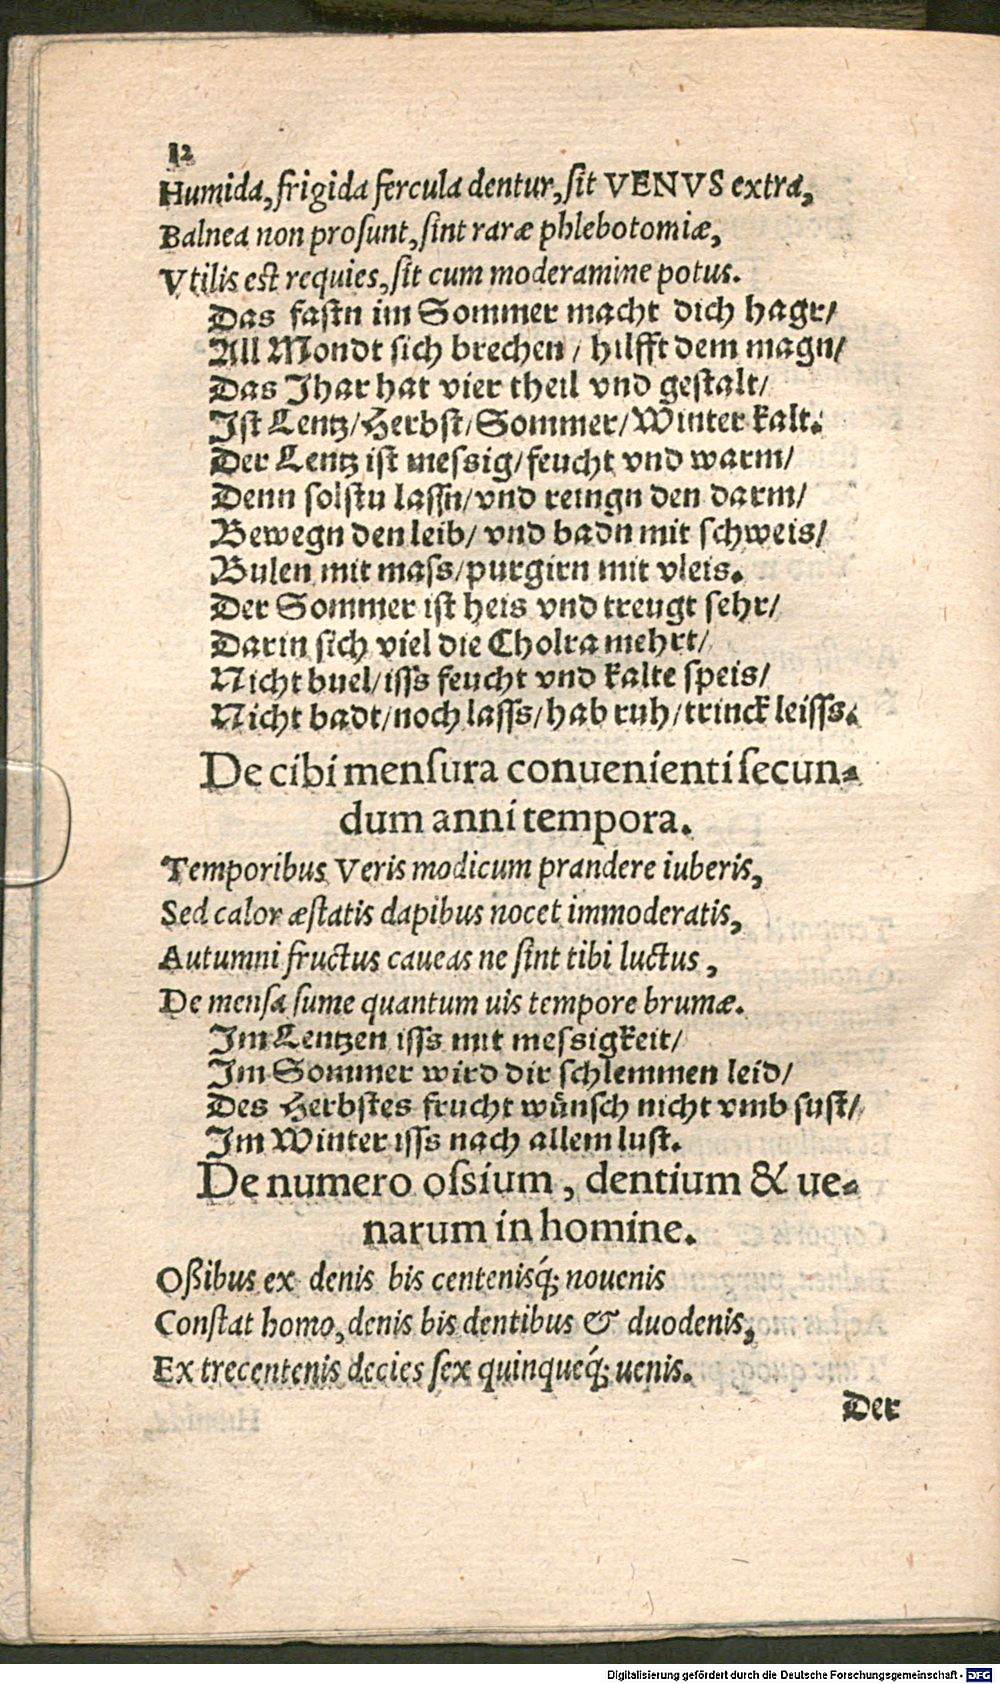 12
Humida, frigida fercula dentur, ſit VENVS extra,
Balnea non proſunt, ſint raræ phlebotomiæ,
Vtilis eſt requies, ſit cum moderamine potus.
Das faſtn im Sommer macht dich hagr/
All Mondt ſich brechen / hilfft dem magn/
Das Jhar hat vier theil vnd geſtalt/
Jſt Lentz/Herbſt/Sommer/Winter kalt.
Der Lentz iſt meſsig/feucht vnd warm/
Denn ſolſtu laſſn/vnd reingn den darm/
Bewegn den leib/ vnd badn mit ſchweis/
Bulen mit maſs/purgirn mit vleis.
Der Sommer iſt heis vnd treugt ſehr/
Darin ſich viel die Cholra mehrt/
Nicht buel/iſſs feucht vnd kalte ſpeis/
Nicht badt/noch laſſs/hab ruh/trinck leiſſs.
De cibi menſura conuenienti ſecun-
dum anni tempora.
Temporibus Veris modicum prandere iuberis,
Sed calor æſtatis dapibus nocet immoderatis,
Autumni fructus caueas ne ſint tibi luctus,
De menſa ſume quantum uis tempore brumæ.
Jm Lentzen iſſs mit meſsigkeit/
Jm Sommer wird dir ſchlemmen leid/
Des Herbſtes frucht wünſch nicht vmb ſuſt/
Jm Winter iſſs nach allem luſt.
De numero oſsium, dentium & ue-
narum in homine.
Oßibus ex denis bis centenisq́; nouenis
Conſtat homo, denis bis dentibus & duodenis,
Ex trecentenis decies ſex quinqueq́; uenis.
Der
Digitalisierung gefördert durch die Deutsche Forschungsgemeinschaft - DFG